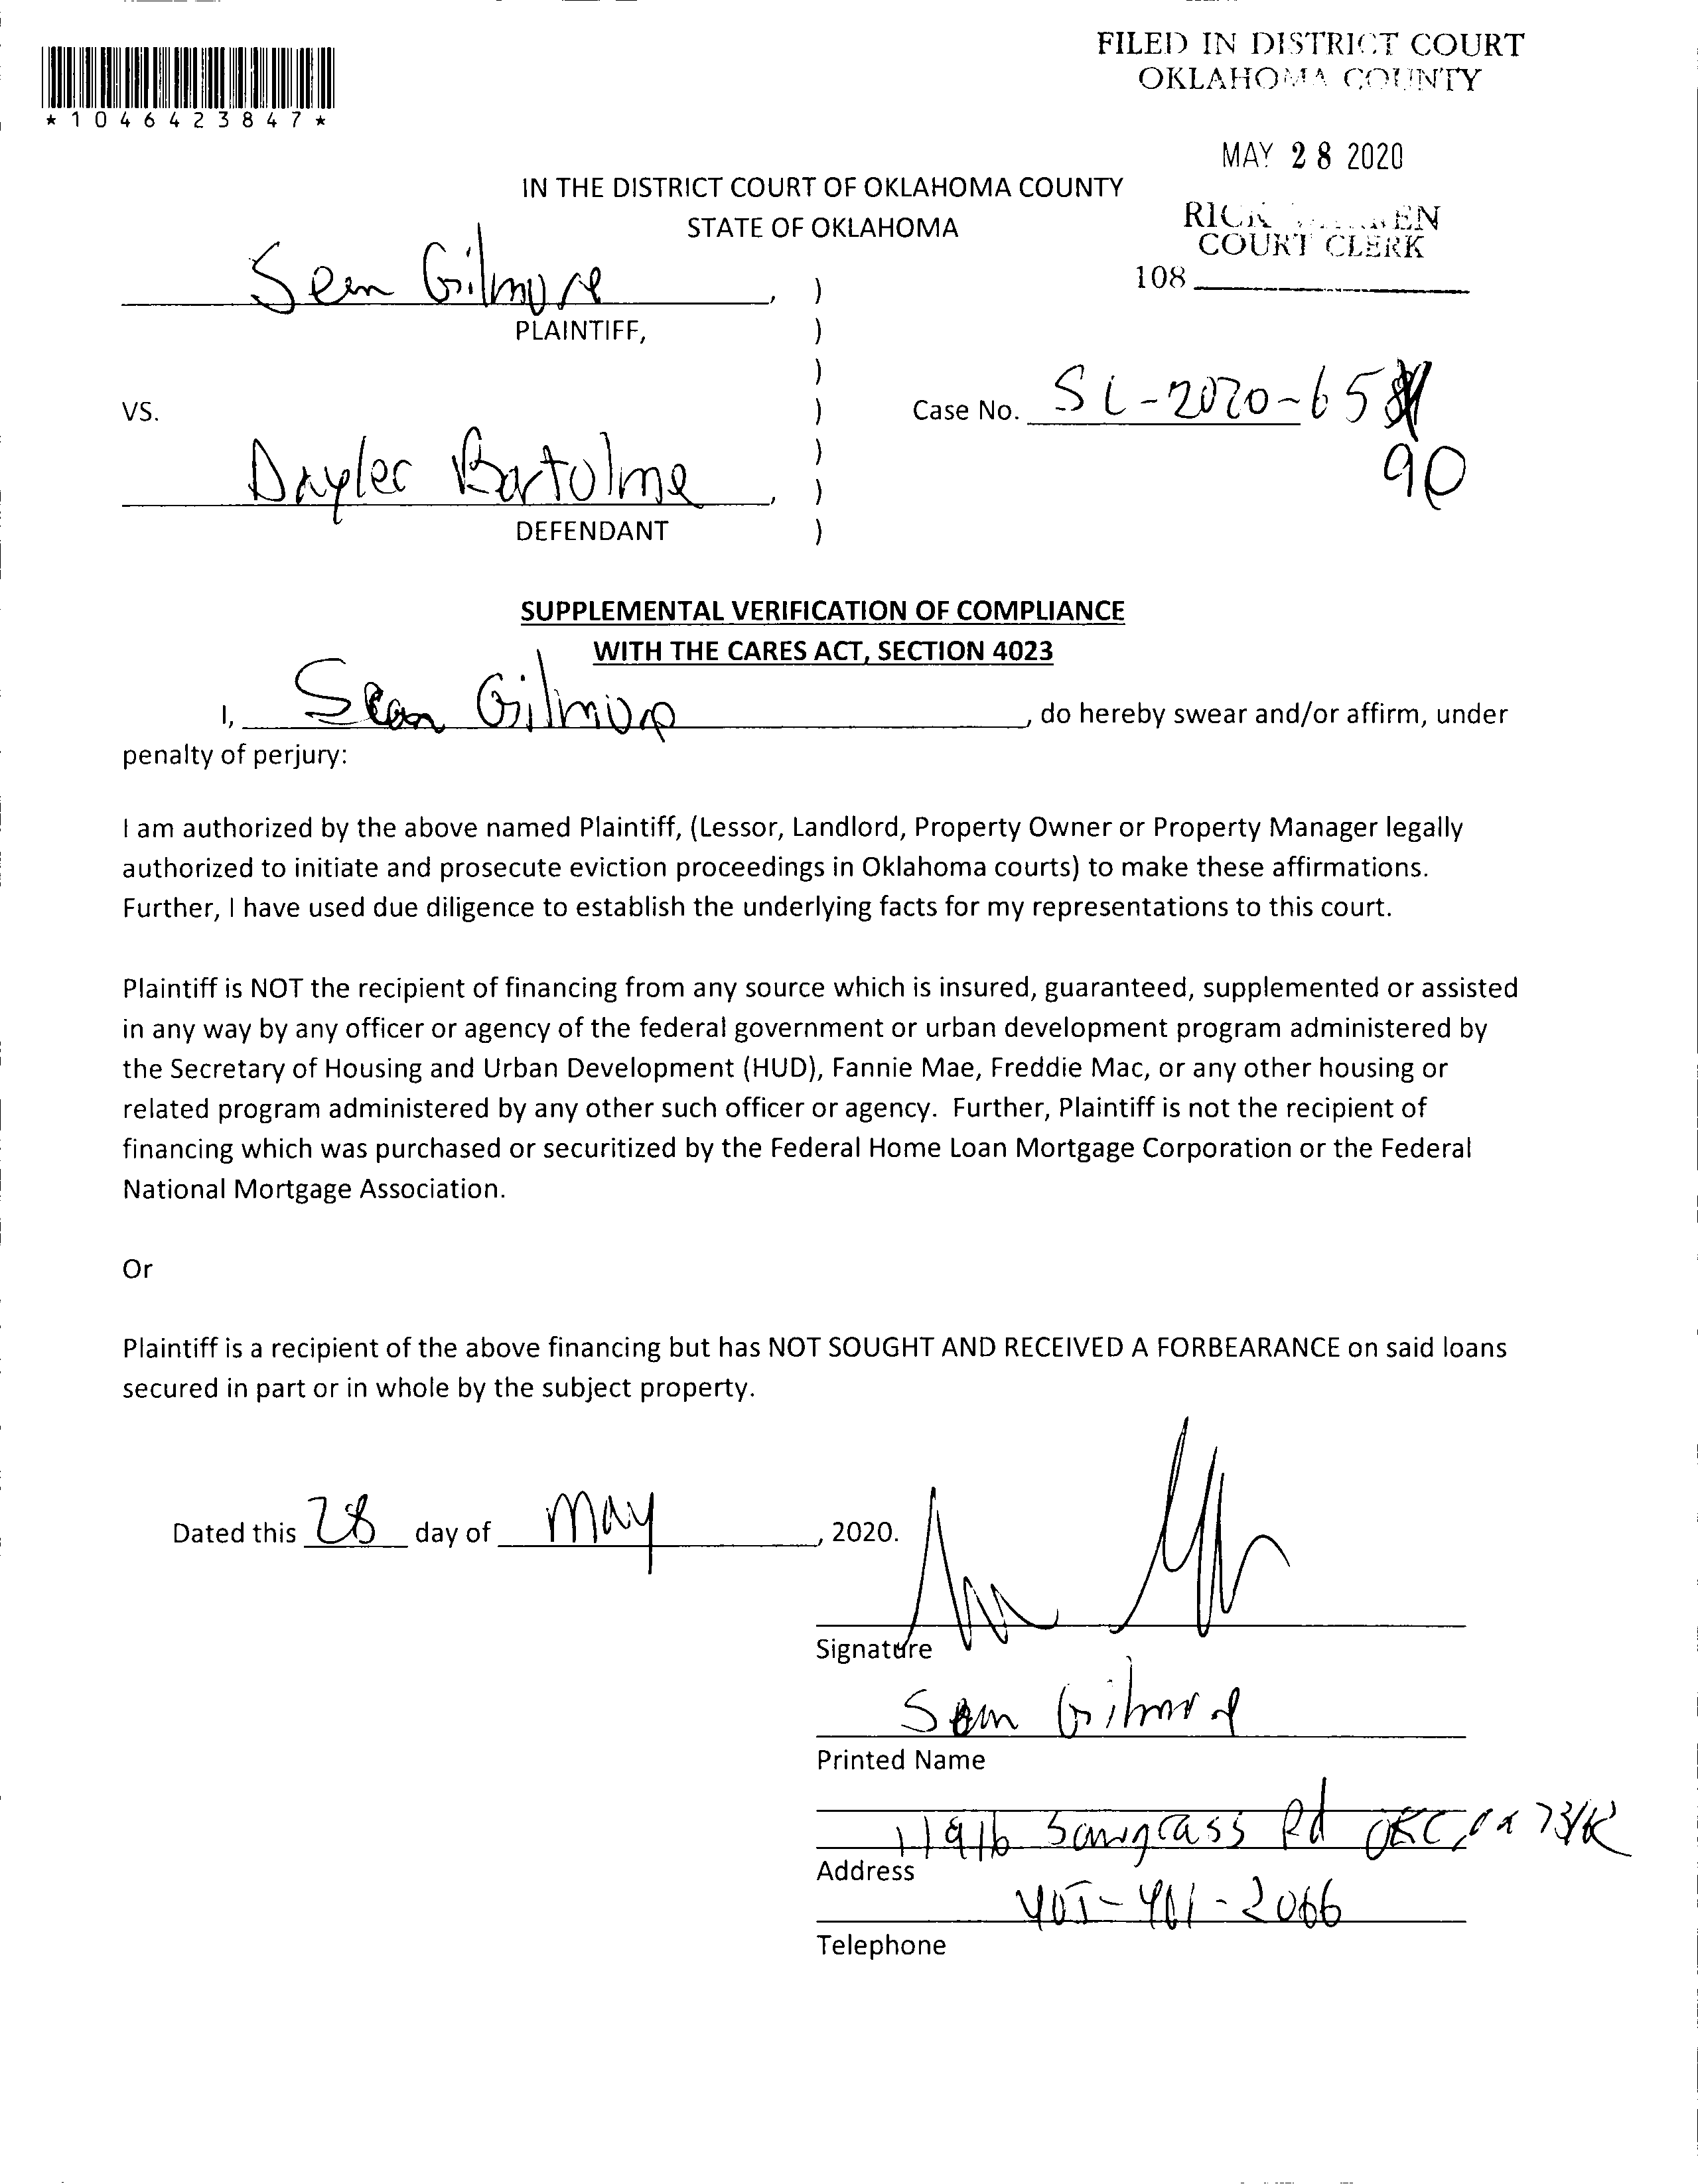 FILED IN DISTRICT COURT
OKLAHOMA COUNTY
*1046423847*
MAY 28 2020
IN THE DISTRICT COURT OF OKLAHOMA COUNTY
STATE OF OKLAHOMA
RICK
COURT CLERK
108
Sean Gilmore, )
PLAINTIFF, )
)
VS. ) Case No. SC-2020-65
90
)
Bartolme, )
DEFENDANT )
SUPPLEMENTAL VERIFICATION OF COMPLIANCE
WITH THE CARES ACT, SECTION 4023
I, Sean Gilmore, do hereby swear and/or affirm, under
penalty of perjury:
I am authorized by the above named Plaintiff, (Lessor, Landlord, Property Owner or Property Manager legally
authorized to initiate and prosecute eviction proceedings in Oklahoma courts) to make these affirmations.
Further, I have used due diligence to establish the underlying facts for my representations to this court.
Plaintiff is NOT the recipient of financing from any source which is insured, guaranteed, supplemented or assisted
in any way by any officer or agency of the federal government or urban development program administered by
the Secretary of Housing and Urban Development (HUD), Fannie Mae, Freddie Mac, or any other housing or
related program administered by any other such officer or agency. Further, Plaintiff is not the recipient of
financing which was purchased or securitized by the Federal Home Loan Mortgage Corporation or the Federal
National Mortgage Association.
Or
Plaintiff is a recipient of the above financing but has NOT SOUGHT AND RECEIVED A FORBEARANCE on said loans
secured in part or in whole by the subject property.
Dated this 28 day of May, 2020.
Signature
Sean Gilmore
Printed Name
11916 Sawgrass Rd OKC,
Address
405-401-2066
Telephone